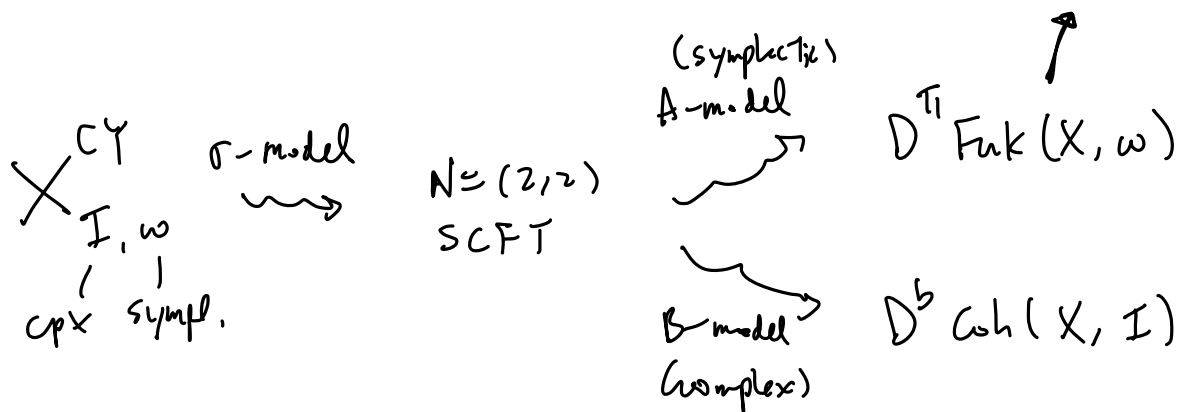 X CY
I, ω
cpx sympl.
σ-model
N=(2,2)
SCFT
(symplectic)
A-model
D^π Fuk(X, ω)
B-model
(complex)
D^b Coh(X, I)